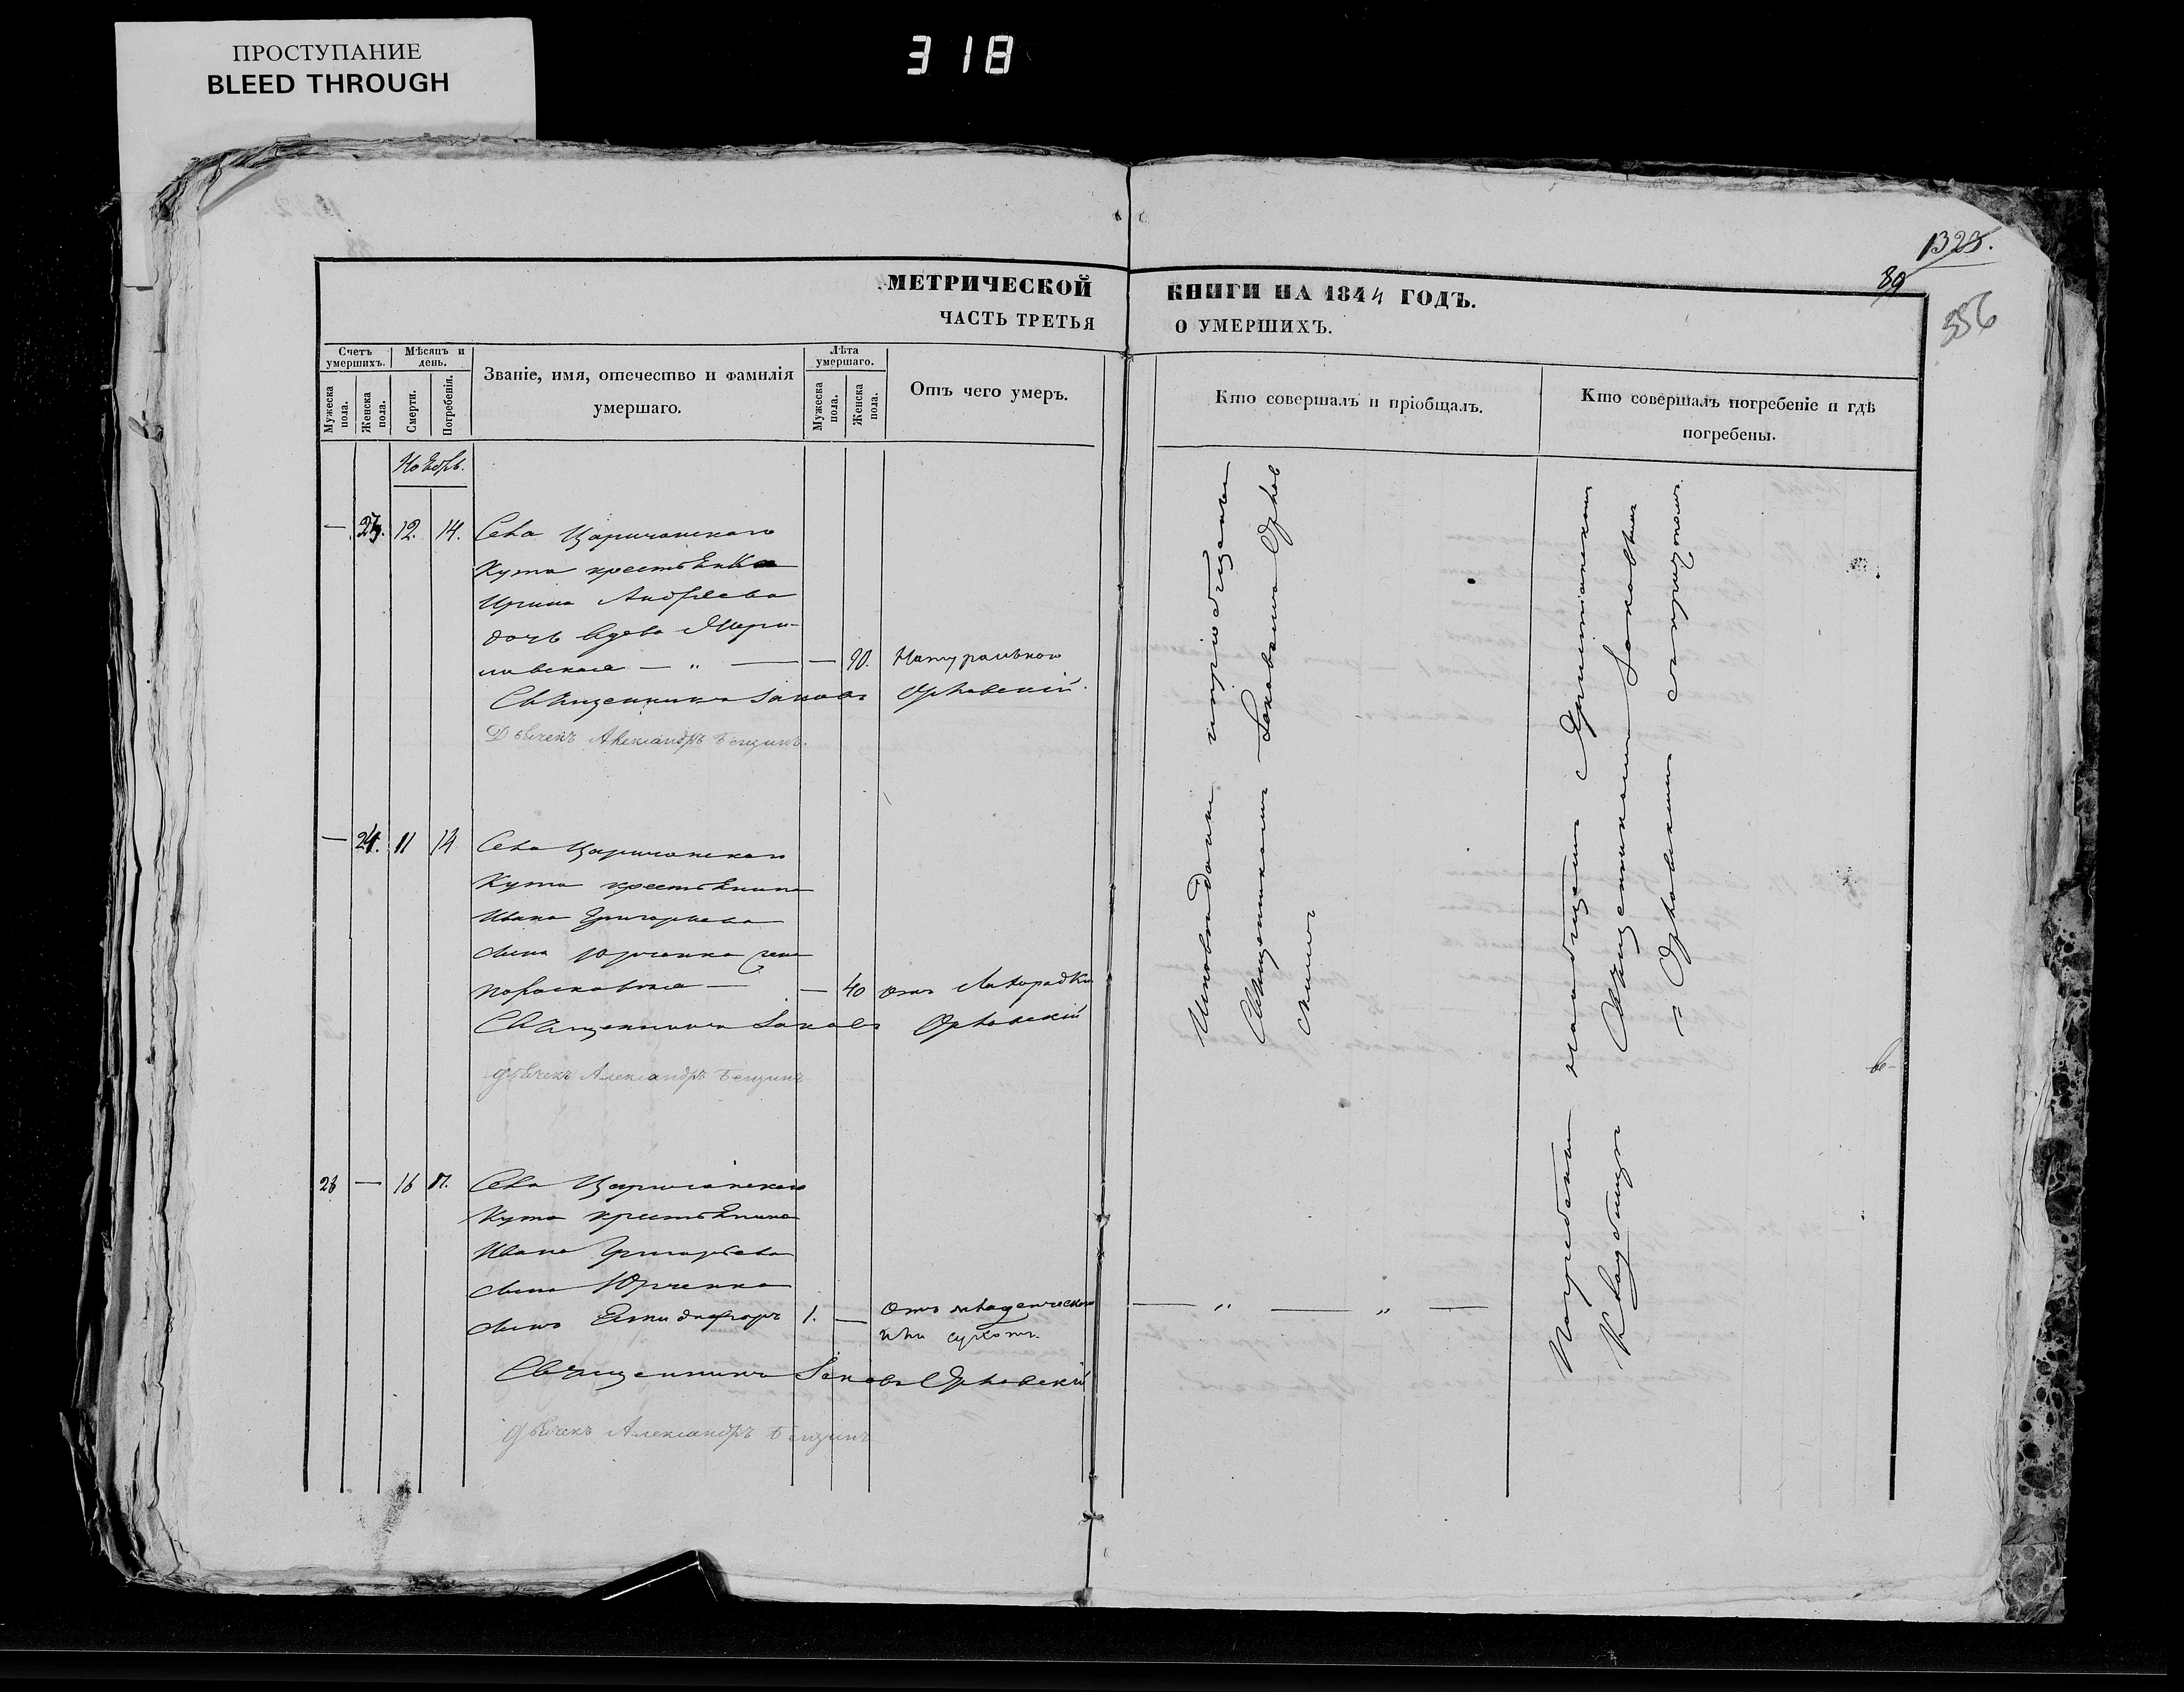 ПРОСТУПАНИЕ
BLEED THROUGH
318
1323.
89
356
МЕТРИЧЕСКОЙ КНИГИ НА 1844 ГОДЪ.
ЧАСТЬ ТРЕТЬЯ О УМЕРШИХЪ.
Счетъ умершихъ.
Мужеска пола.
Женска пола.
Мѣсяцъ и день.
Смерти.
Погребенія.
Званіе, имя, отечество и фамилія умершаго.
Лѣта умершаго.
Мужеска пола.
Женска пола.
Отъ чего умеръ.
Кто совершалъ и пріобщалъ.
Кто совершалъ погребеніе и гдѣ погребены.
Ноябрь.
— 23. 12. 14. Села Царичанскаго
Кута крестьянка
Ирина Андреева
дочь вдова
— " — — 90. Натурально
Священникъ Іаковъ Орловскій.
Дьячекъ Александръ
— 24. 11 14 Села Царичанскаго
Кута крестьянина
Ивана Григорьева
сына Юрченка жена
Порасковія — — 40 отъ Лихорадки
Священникъ Іаковъ Орловскій
Дьячекъ Александръ
23 — 16 17. Села Царичанскаго
Кута крестьянина
Ивана Григорьева
сына Юрченка
сынъ 1. — отъ младенческой
сухоты
Священникъ Іаковъ Орловскій
Дьячекъ Александръ
Исповѣданы и пріобщены
Священникомъ Іаковомъ Орлов
скимъ
— " — " —
Погребены на общемъ Христианскомъ
Кладбищѣ Священникомъ Іаковомъ
Орловскимъ съ причтомъ